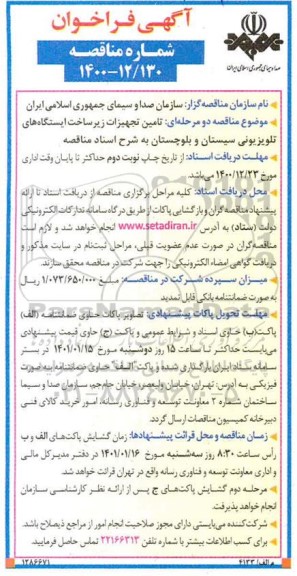 آگهی فراخوان
شماره مناقصه
۱۴۰۰-۱۲/۱۳۰
صدا و سیمای جمهوری اسلامی ایران
نام سازمان مناقصه‌گزار: سازمان صدا و سیمای جمهوری اسلامی ایران
موضوع مناقصه دو مرحله‌ای: تامین تجهیزات زیرساخت ایستگاه‌های
تلویزیونی سیستان و بلوچستان به شرح اسناد مناقصه
مهلت دریافت اسناد: از تاریخ چاپ نوبت دوم حداکثر تا پایان وقت اداری
مورخ ۱۴۰۰/۱۲/۲۳ می‌باشد.
محل دریافت اسناد: کلیه مراحل برگزاری مناقصه از دریافت اسناد تا ارائه
پیشنهاد مناقصه‌گران و بازگشایی پاکات از طریق درگاه سامانه تدارکات الکترونیکی
دولت (ستاد) به آدرس www.setadiran.ir انجام خواهد شد و لازم است
مناقصه‌گران در صورت عدم عضویت قبلی، مراحل ثبت‌نام در سایت مذکور و
دریافت گواهی امضاء الکترونیکی را جهت شرکت در مناقصه محقق سازند.
میزان سپرده شرکت در مناقصه: مبلغ ۱/۰۷۳/۶۵۰/۰۰۰ ریال
به صورت ضمانتنامه بانکی قابل تمدید
مهلت تحویل پاکات پیشنهادی: تصویر پاکات حاوی ضمانتنامه (الف)
پاکت(ب) حاوی اسناد و شرایط عمومی و پاکت (ج) حاوی قیمت پیشنهادی
می‌بایست حداکثر تا ساعت ۱۵ روز دوشنبه مورخ ۱۴۰۱/۰۱/۱۵ در بستر
سامانه ستاد ایران بارگذاری شده و پاکت الف حاوی ضمانتنامه به صورت
فیزیکی به آدرس: تهران، خیابان ولیعصر، خیابان جام‌جم، سازمان صدا و سیما
ساختمان شماره ۲ معاونت توسعه و فناوری رسانه، امور خرید کالای فنی
دبیرخانه کمیسیون مناقصات ارسال گردد.
زمان مناقصه و محل قرائت پیشنهادها: زمان گشایش پاکت‌های الف و ب
رأس ساعت ۸:۳۰ روز سه‌شنبه مورخ ۱۴۰۱/۰۱/۱۶ در دفتر مدیرکل مالی
و اداری معاونت توسعه و فناوری رسانه واقع در تهران قرائت خواهد شد.
مرحله دوم گشایش پاکت‌های ج پس از ارائه نظر کارشناسی سازمان
انجام خواهد پذیرفت.
شرکت‌کننده می‌بایستی دارای مجوز صلاحیت انجام امور از مراجع ذیصلاح باشد.
برای کسب اطلاعات بیشتر با شماره تلفن ۲۲۱۶۶۳۱۳ تماس حاصل فرمایید.
م الف/۴۱۳۳
۱۲۸۶۶۷۱